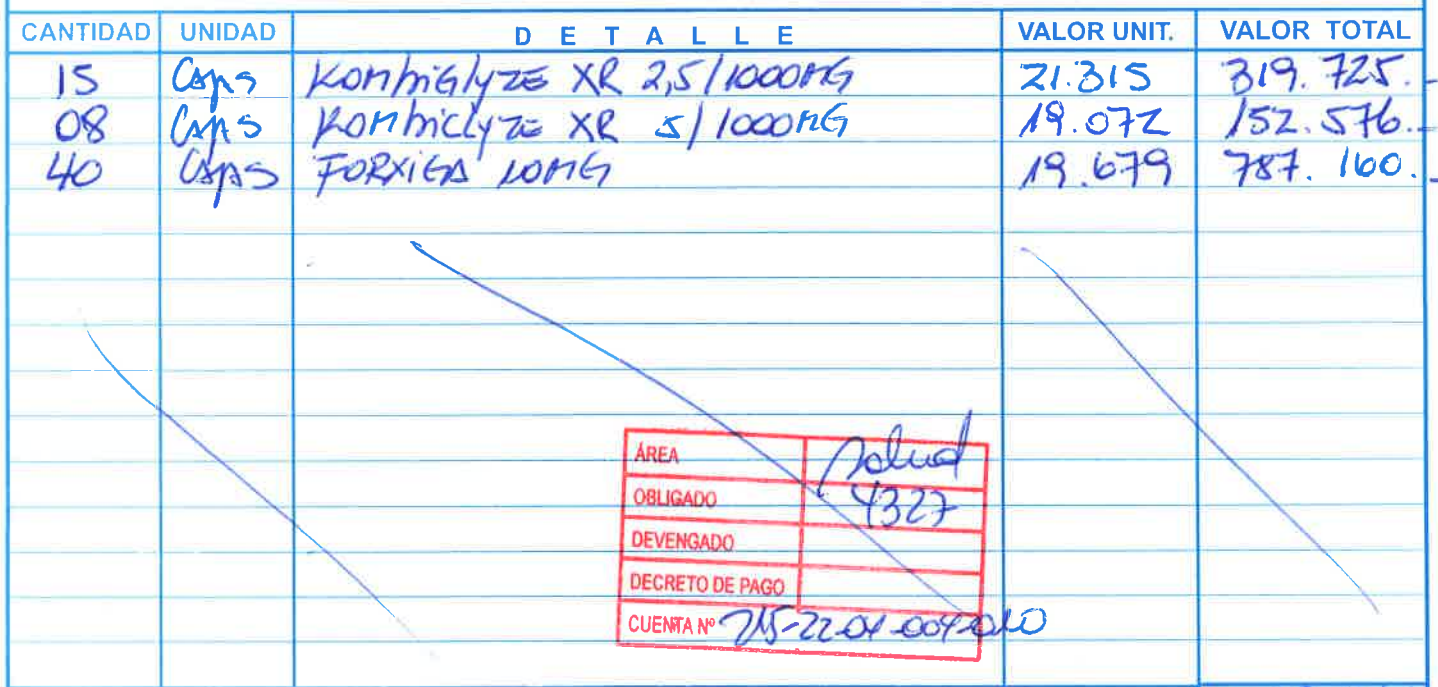 CANTIDAD UNIDAD DETALLE VALOR UNIT. VALOR TOTAL
15 Caps KOMbiGlyZE XR 2,5/1000MG 21.315 319.725.-
08 Caps KOMbiclyZE XR 5/1000MG 19.072 152.576.-
40 Caps FORXiGA 10MG 19.679 787.160.-
ÁREA Salud
OBLIGADO 4327
DEVENGADO
DECRETO DE PAGO
CUENTA Nº 215-22-04-004-010